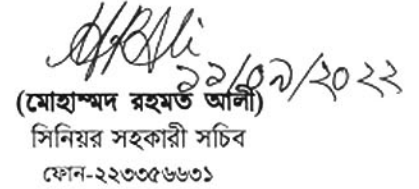 ১১/০৯/২০২২
(মোহাম্মদ রহমত আলী)
সিনিয়র সহকারী সচিব
ফোন-২২৩৩৫৬৬৩১